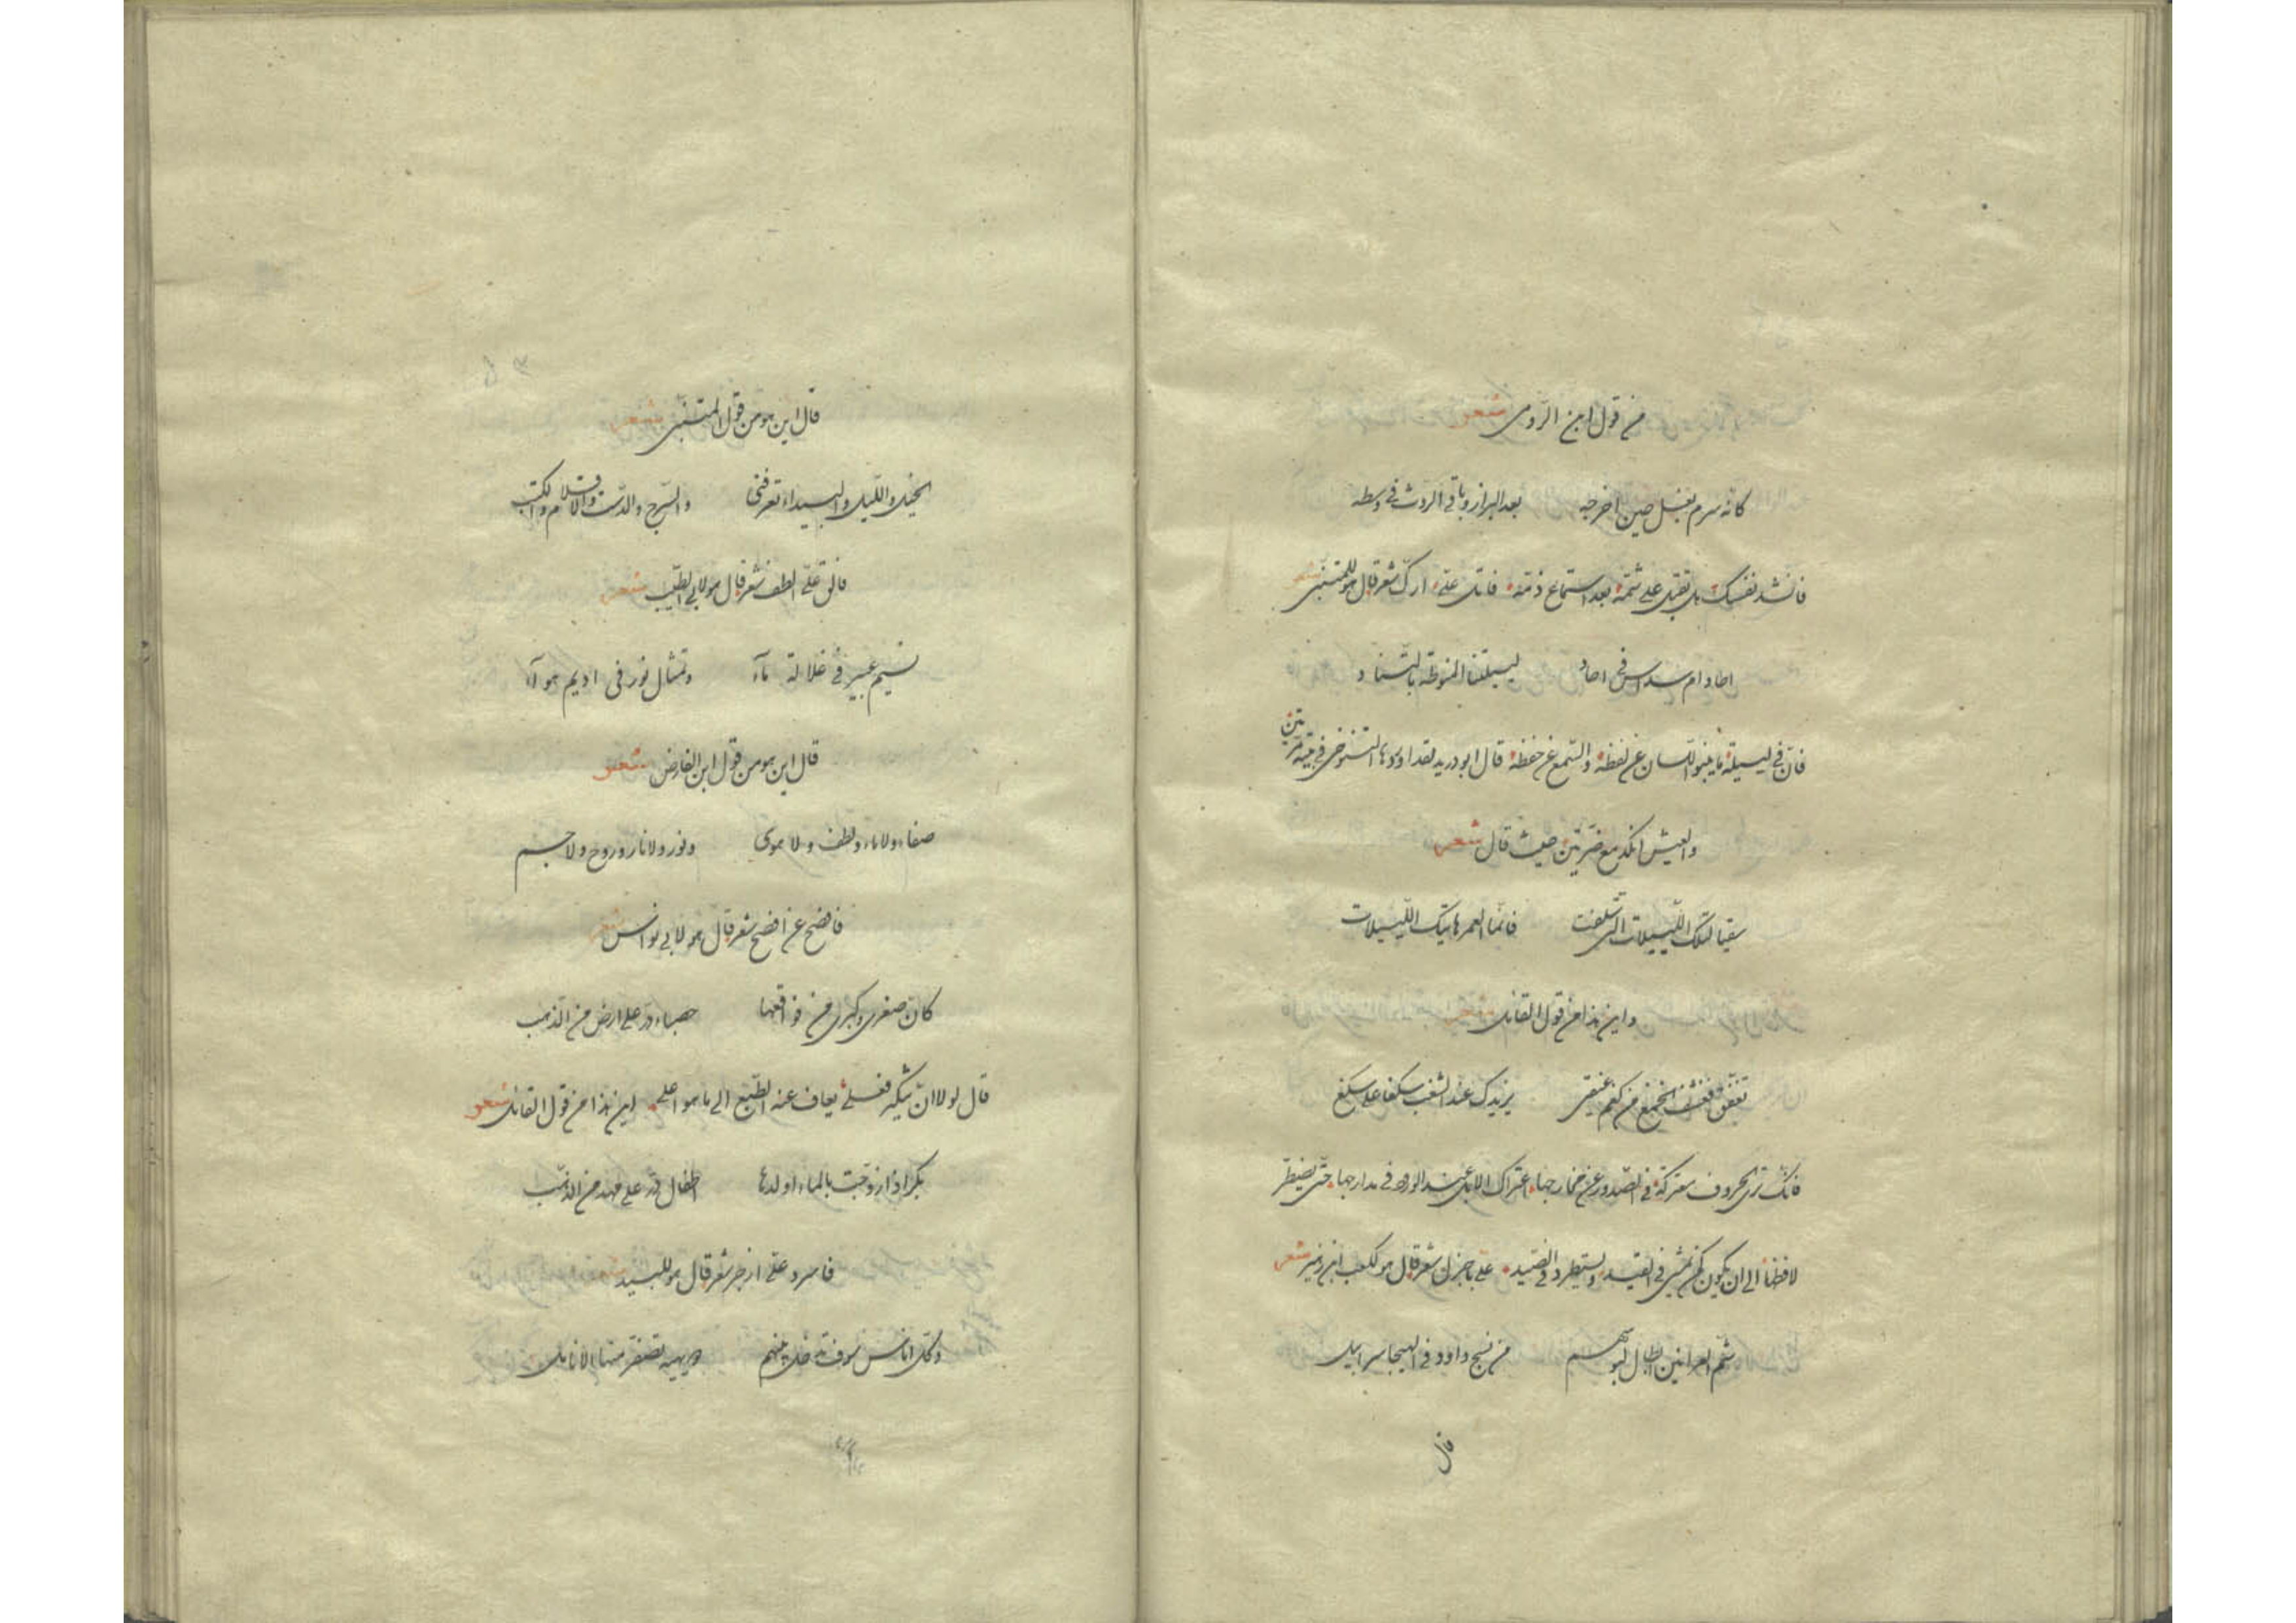 من قول ابن الرومى شعر
كانه سرم بغل حين اخرجه بعد البراز وباقى الروث فى وسطه
فانشد نفسك بل تقبل على شتمه بعد استماع ذمّه فاتل علىّ اركّ شعر قال هو للمتنبّى شعر
احاد ام سداس فى احاد لييلتنا المنوطة بالتناد
فانّ فى لييلة ما ينبو اللسان عن لفظه والسّمع عن حفظه قال ابو دريد لقد اوردها التنوخى فى بيته مرّتين
والعيش انكد مع ضرّتين حيث قال شعر
سقيا لتلك اللّييلات الّتى سلفت فانّما العمر هاتيك اللّييلات
واين هذا من قول القائل شعر
يزيدك عند الشغب سكفا على سكف
فانّك ترى الحروف معتركة فى الصّدور عن مخارجها اعتراك الابل عند الورود فى مدارجها حتّى يضطرّ
لافظها الى ان يكون كمن يمشى فى القيد ويستطرد فى الصّيد علىّ باجزل شعر قال هو لكعب ابن زهير شعر
شمّ العرانين ابطال لبوسهم من نسج داود فى الهيجا سرابيل
قال
قال اين هو من قول المتنبّى شعر
الخيل والليل والبيداء تعرفنى والسّرج والدّست والاقلام والكتب
فالق علىّ الطف شعر قال هو لابى الطّيّب شعر
نسيم عبير فى غلالة مآء وتمثال نور فى اديم هوآء
قال اين هو من قول ابن الفارض شعر
صفاء ولا ماء ولطف ولا هوى ونور ولا نار وروح ولا جسم
فافصح عن افصح شعر قال هو لابى نواس شعر
كان صغرى وكبرى من فواقعها حصباء درّ على ارض من الذهب
قال لولا ان شكى فعلى يعاف عنه الطّبع الى ما هو اعلى اين هذا من قول القائل شعر
بكر اذا زوّجت بالماء اولدها اطفال درّ على مهد من الذهب
فاسرد علىّ ازجر شعر قال هو للبيد شعر
وكلّ اناس سوف تدخل بينهم دويهية تصفرّ منها الانامل